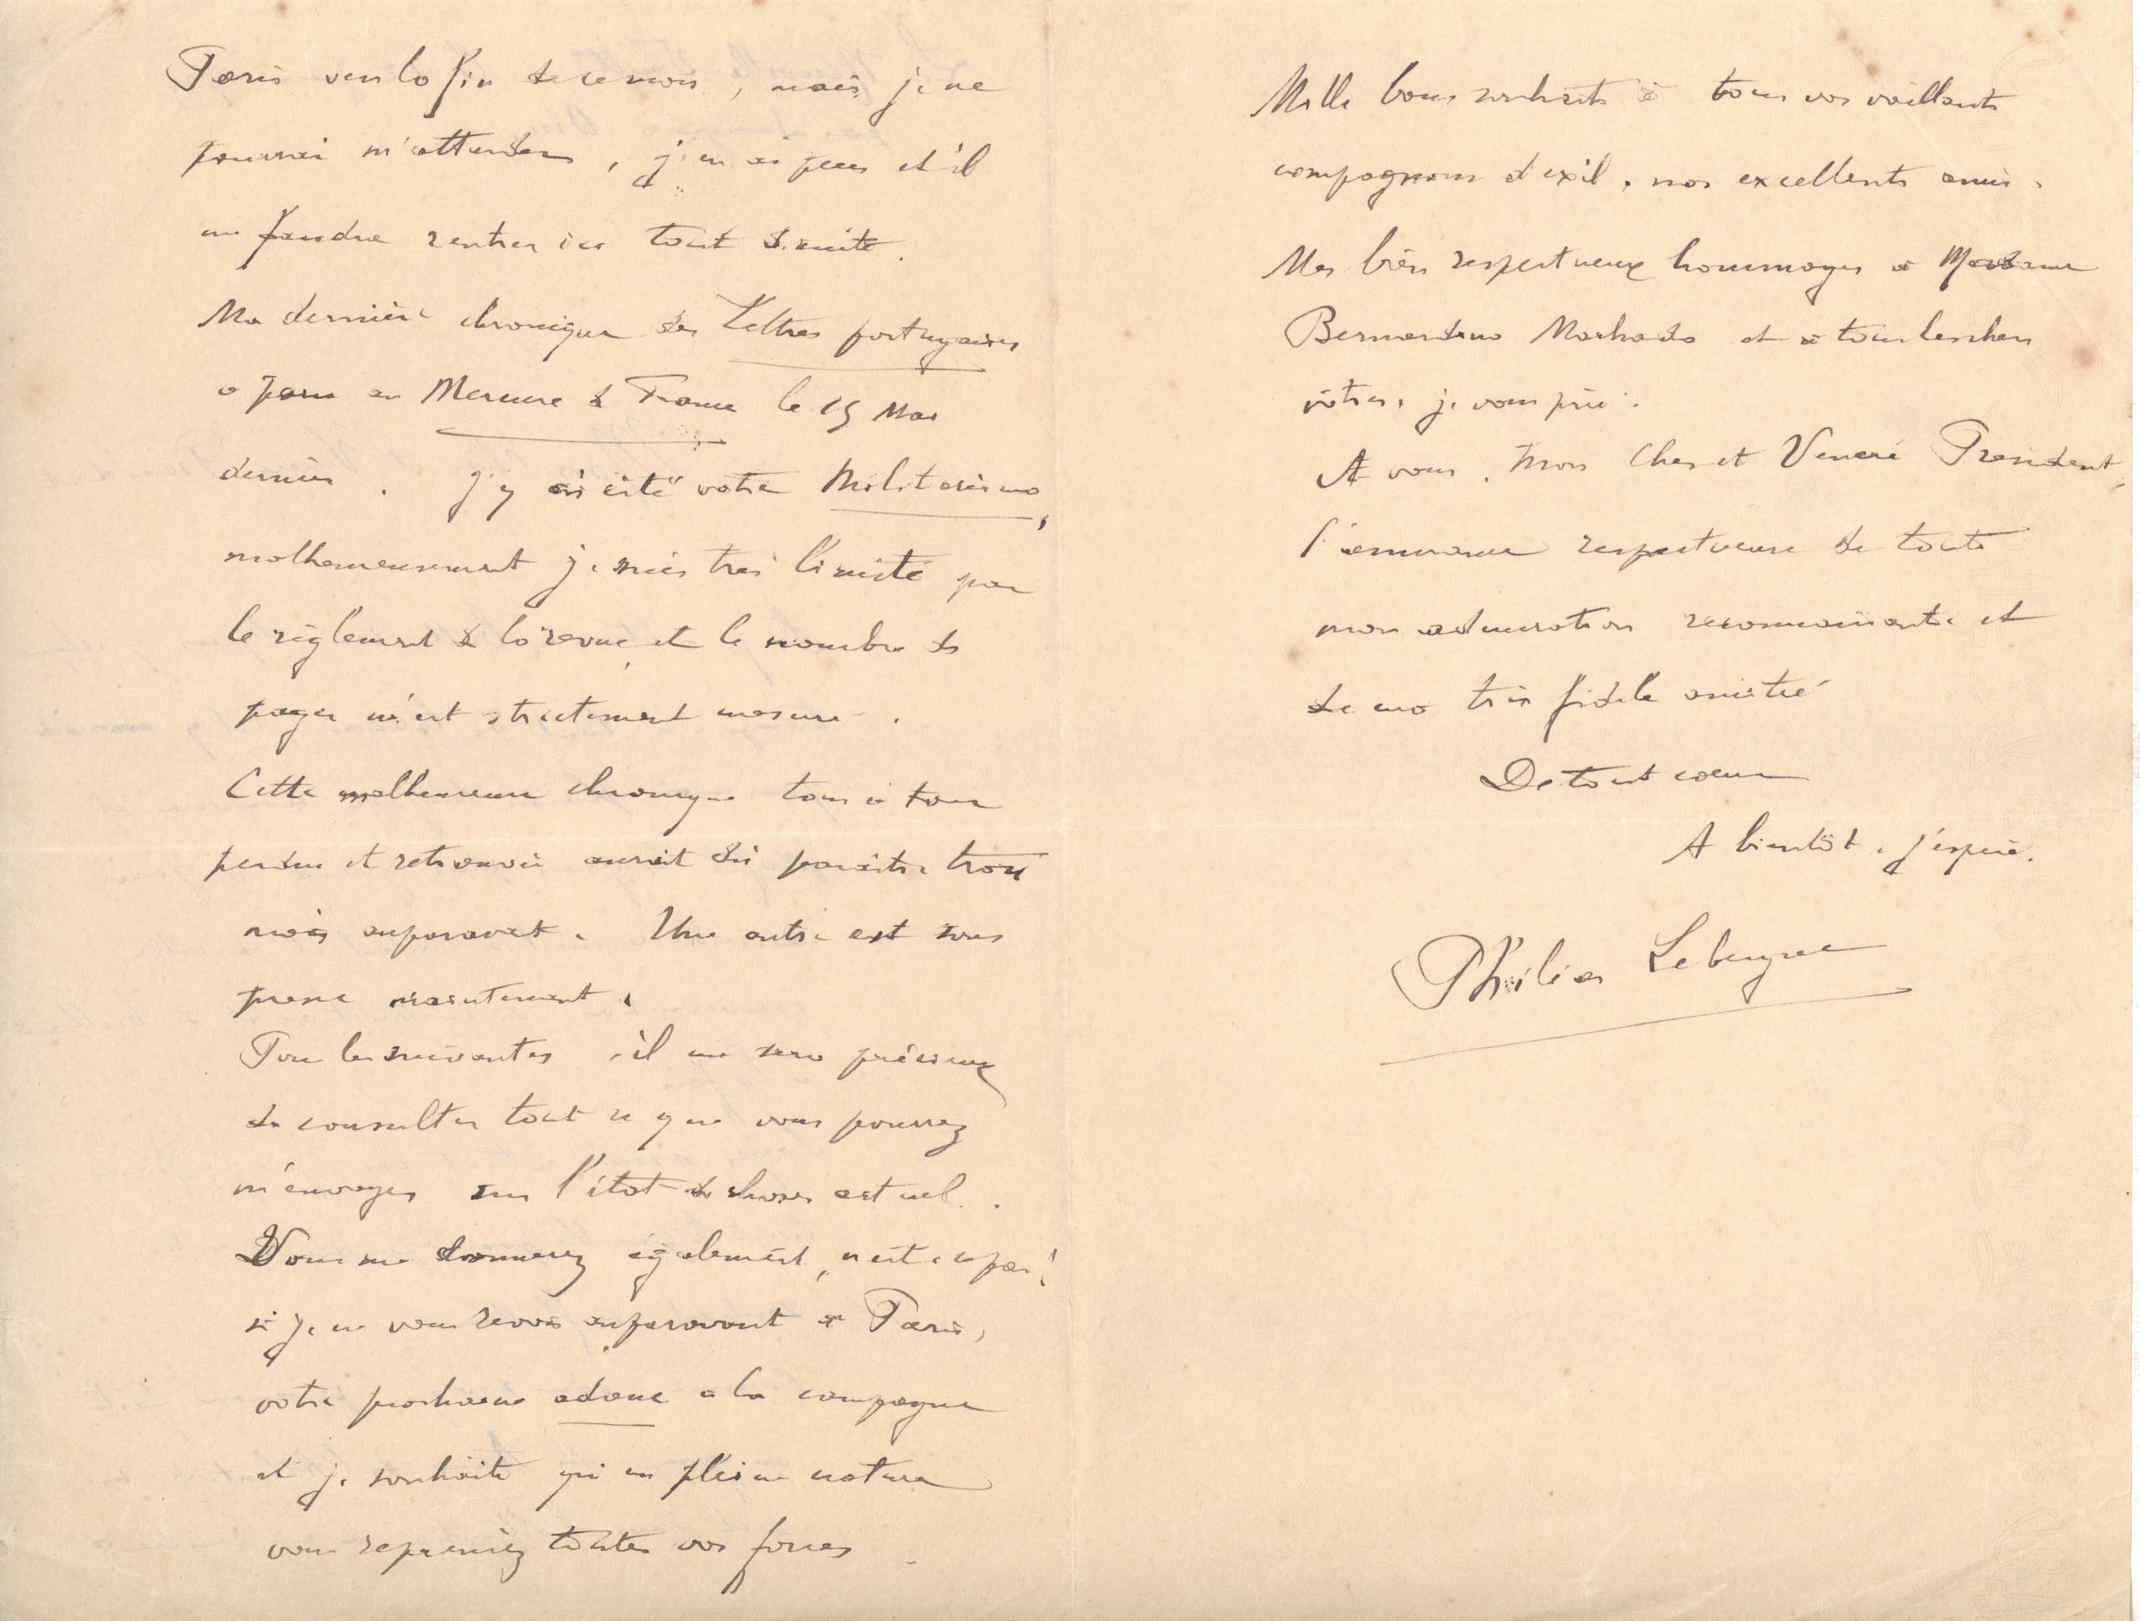 Paris vers la fin de ce mois, mais je ne
pourrai m'attarder, j'en ai peur et il
me faudra rentrer ici tout de suite.
Ma dernière chronique des Lettres portugaises
a paru au Mercure de France le 15 Mai
dernier. J'y ai cité votre Militarismo,
malheureusement je suis très limité par
le règlement de la revue et le nombre de
pages m'est strictement mesuré.
Cette malheureuse chronique tour à tour
perdue et retrouvée aurait dû paraître trois
mois auparavant. Une autre est sous
presse maintenant.
Pour les suivantes, il me sera précieux
de consulter tout ce que vous pourrez
m'envoyer sur l'état de choses actuel.
Vous me donnerez également, n'est-ce pas!
si je ne vous revois auparavant à Paris,
votre prochaine adresse à la campagne
et je souhaite qu'en pleine nature
vous repreniez toutes vos forces.
Mille bons souhaits à tous vos vaillants
compagnons d'exil, nos excellents amis.
Mes bien respectueux hommages à Madame
Bernardino Machado et à tous les chers
vôtres, je vous prie.
A vous, Mon Cher et Vénéré Président,
l'assurance respectueuse de toute
mon admiration reconnaissante et
de ma très fidèle amitié
De tout coeur
A bientôt, j'espère.
Philéas Lebesgue